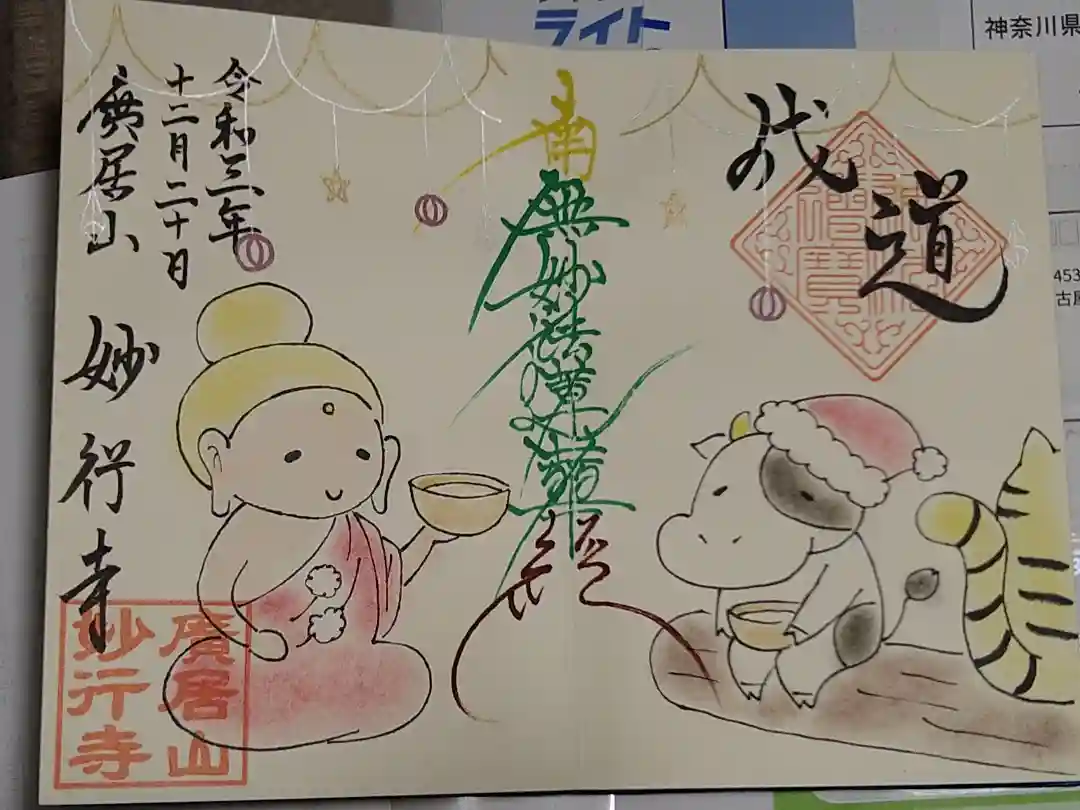 ライト
神奈川県
453
成道
南無妙法蓮華経
令和三年
十二月二十日
廣居山
妙行寺
廣居山
妙行寺